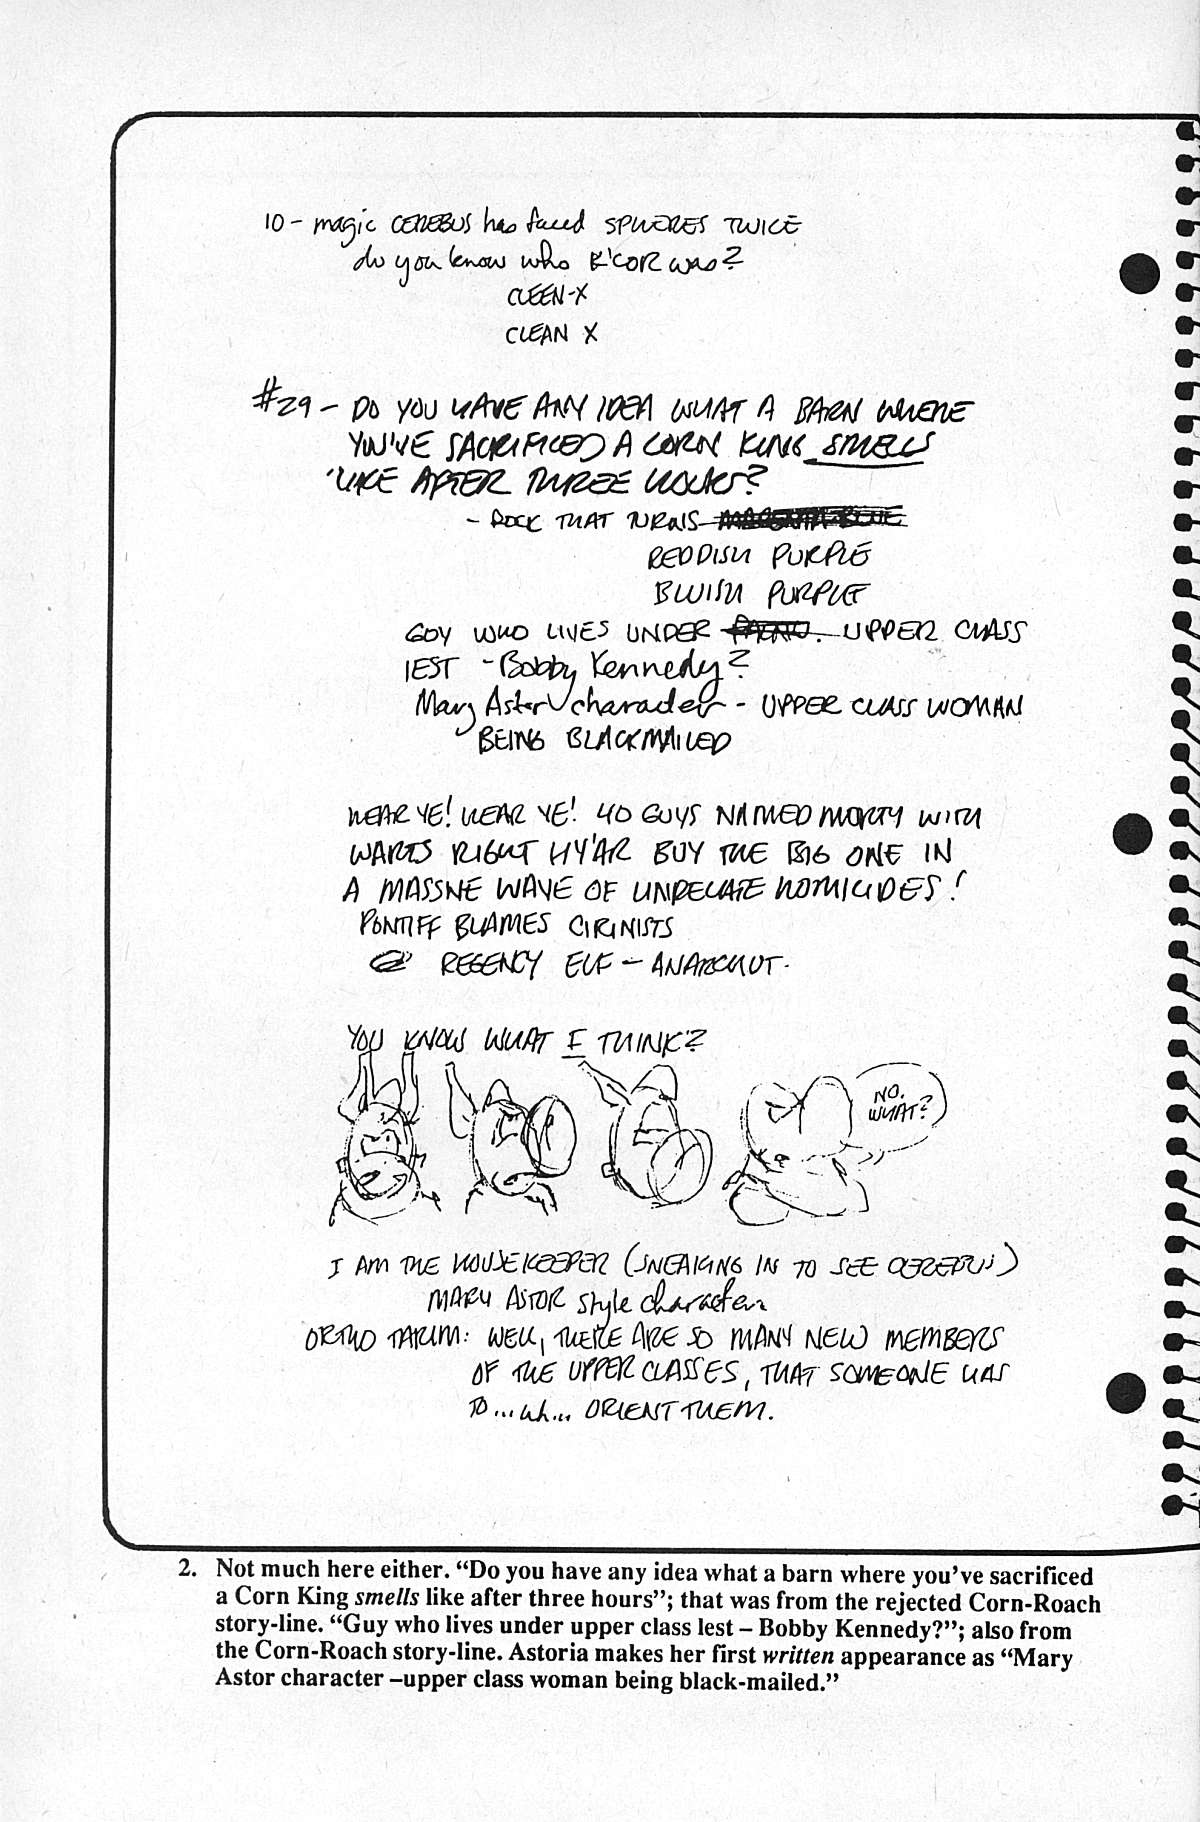 10 - magic CEREBUS has faced SPHERES TWICE
do you know who K'COR was?
CLEEN-X
CLEAN X
#29 - DO YOU HAVE ANY IDEA WHAT A BARN WHERE
YOU'VE SACRIFICED A CORN KING SMELLS
LIKE AFTER THREE HOURS?
- ROCK THAT TURNS
REDDISH PURPLE
BLUISH PURPLE
GUY WHO LIVES UNDER UPPER CLASS
IEST - Bobby Kennedy?
Mary Astor character - UPPER CLASS WOMAN
BEING BLACKMAILED
HEAR YE! HEAR YE! 40 GUYS NAMED MORTY WITH
WARTS RIGHT HY'AR BUY THE BIG ONE IN
A MASSIVE WAVE OF INDELICATE HOMICIDES!
PONTIFF BLAMES CIRINISTS
REGENCY ELF - ANARCHIST.
YOU KNOW WHAT I THINK?
NO.
WHAT?
I AM THE HOUSEKEEPER (SNEAKING IN TO SEE CEREBUS)
MARY ASTOR style character
ORTHO TARIM: WELL, THERE ARE SO MANY NEW MEMBERS
OF THE UPPER CLASSES, THAT SOMEONE HAS
TO... uh... ORIENT THEM.
2. Not much here either. “Do you have any idea what a barn where you’ve sacrificed
a Corn King smells like after three hours”; that was from the rejected Corn-Roach
story-line. “Guy who lives under upper class lest – Bobby Kennedy?”; also from
the Corn-Roach story-line. Astoria makes her first written appearance as “Mary
Astor character –upper class woman being black-mailed.”